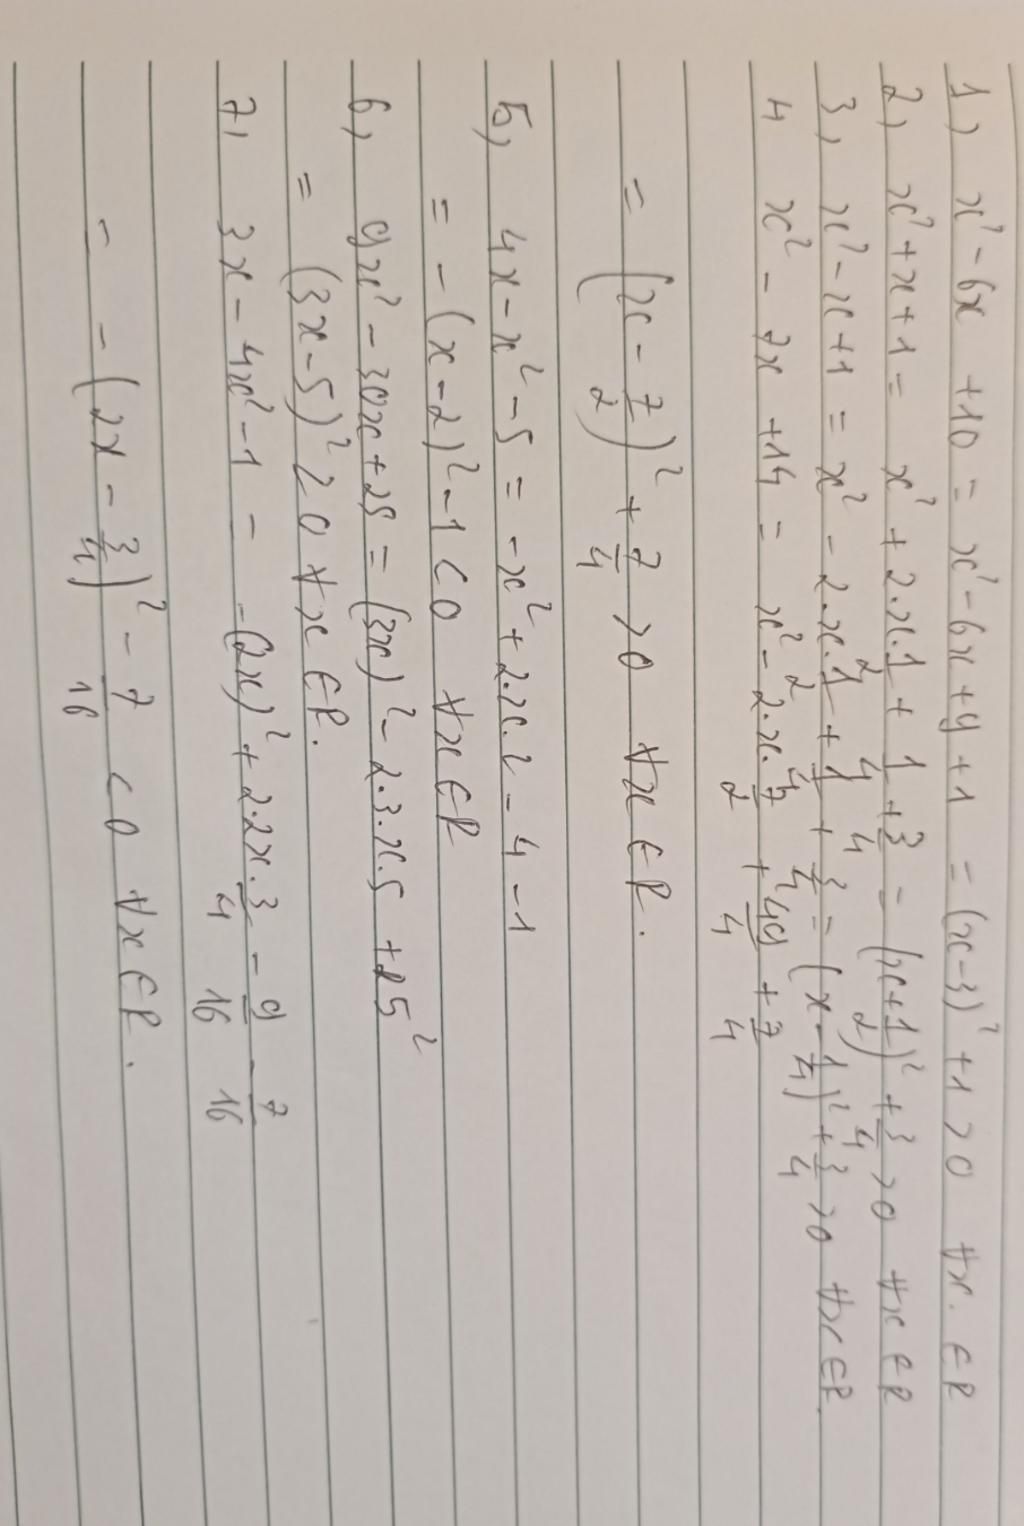 1, x² - 6x + 10 = x² - 6x + 9 + 1 = (x-3)² + 1 > 0 ∀x. ∈ R
2, x² + x + 1 = x² + 2.x.1/2 + 1/4 + 3/4 = (x+1/2)² + 3/4 > 0 ∀x ∈ R
3, x² - x + 1 = x² - 2.x.1/2 + 1/4 + 3/4 = (x - 1/4)² + 3/4 > 0 ∀x ∈ R.
4 x² - 7x + 14 = x² - 2.x.7/2 + 49/4 + 7/4
= (x - 7/2)² + 7/4 > 0 ∀x ∈ R.
5, 4x - x² - 5 = -x² + 2.x.2 - 4 - 1
= -(x-2)² - 1 < 0 ∀x ∈ R
6, 9x² - 30x + 25 = (3x)² - 2.3.x.5 + 5²
= (3x-5)² ≥ 0 ∀x ∈ R.
7, 3x - 4x² - 1 = -(2x)² + 2.2x.3/4 - 9/16 - 7/16
= -(2x - 3/4)² - 7/16 < 0 ∀x ∈ R.